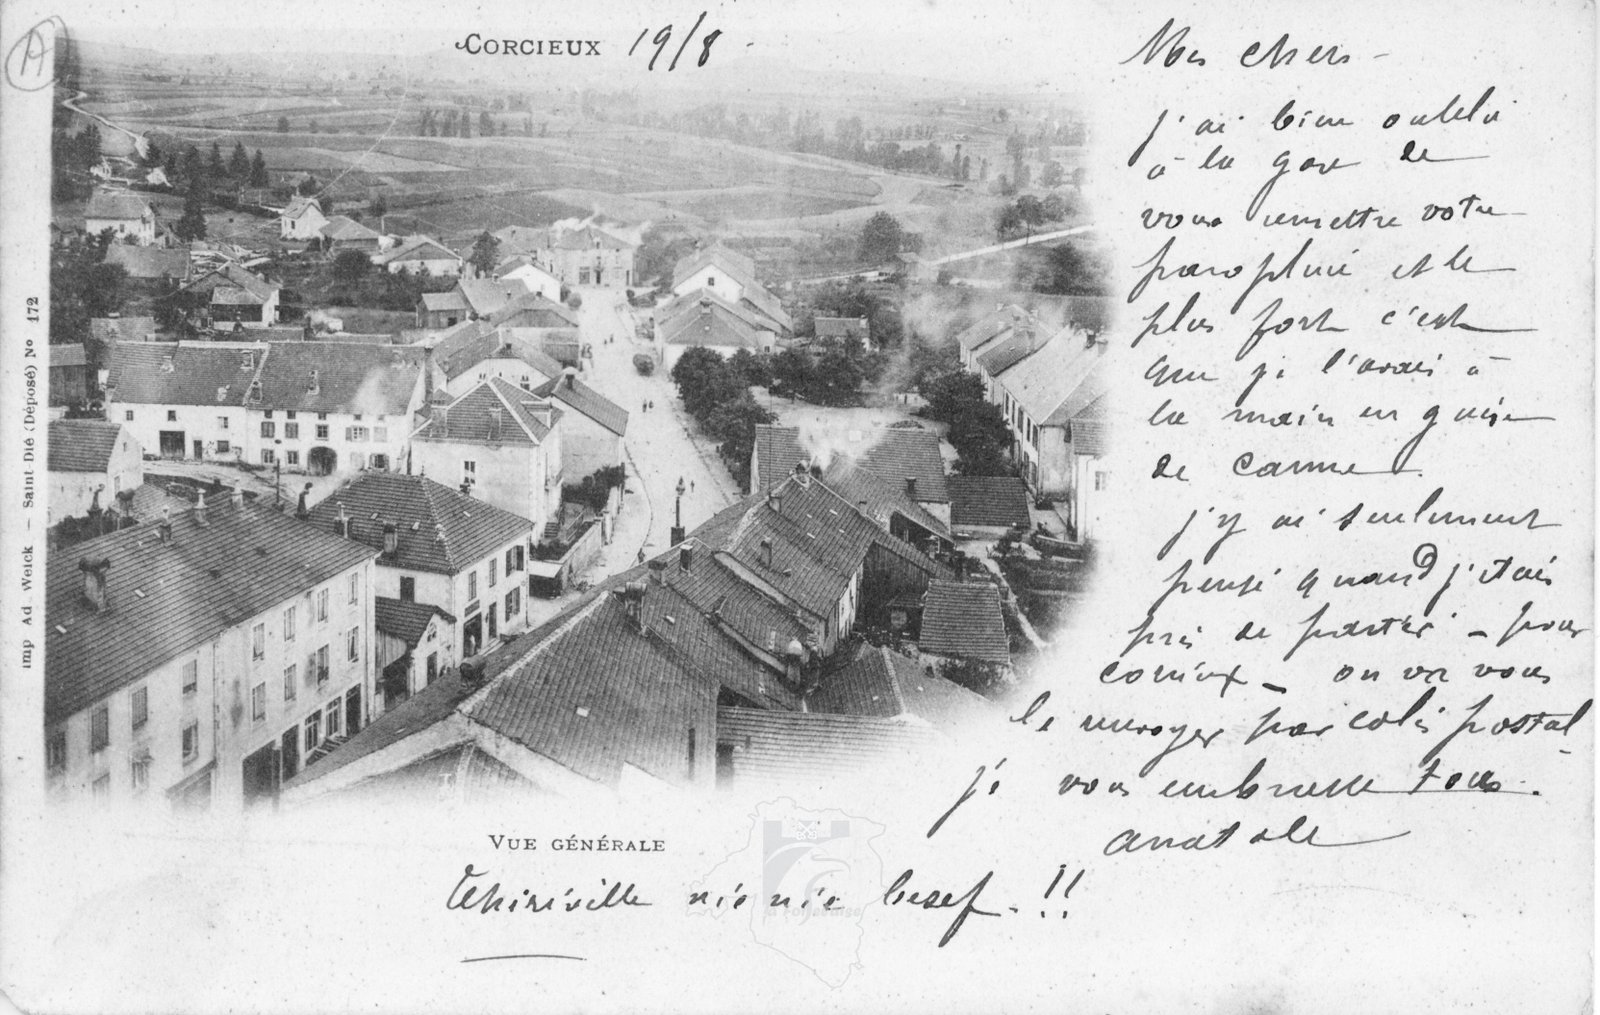 A
CORCIEUX 19/8
Mes chers -
j'ai bien oublié
à la gare de
vous remettre votre
parapluie et le
plus fort c'est
que je l'avais à
la main en guise
de canne.
j'y ai seulement
pensé quand j'étais
près de partir - pour
corcieux - on va vous
le renvoyer par colis postal -
je vous embrasse tous.
anatole
VUE GÉNÉRALE
Thiriville nié nié besef. !!
Imp Ad Weick - Saint Dié (Déposé) No 172